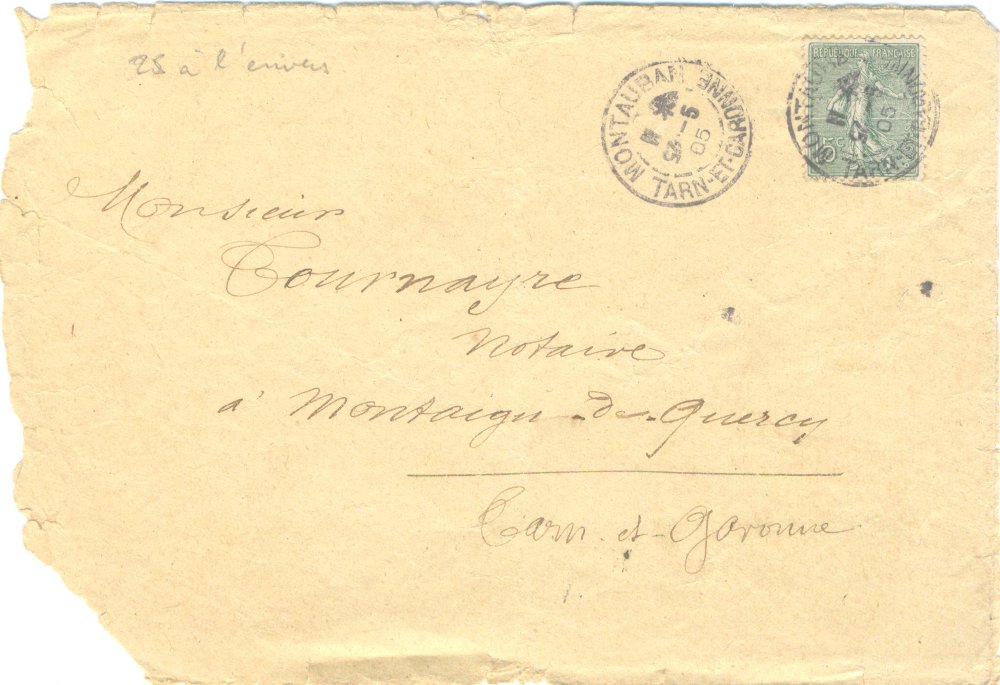 25 à l'envers
MONTAUBAN TARN-ET-GARONNE
5
05
REPUBLIQUE FRANÇAISE
MONTAUBAN TARN-ET-GARONNE
05
Monsieur
Tournayre
Notaire
à Montaigu-de-Quercy
Tarn-et-Garonne